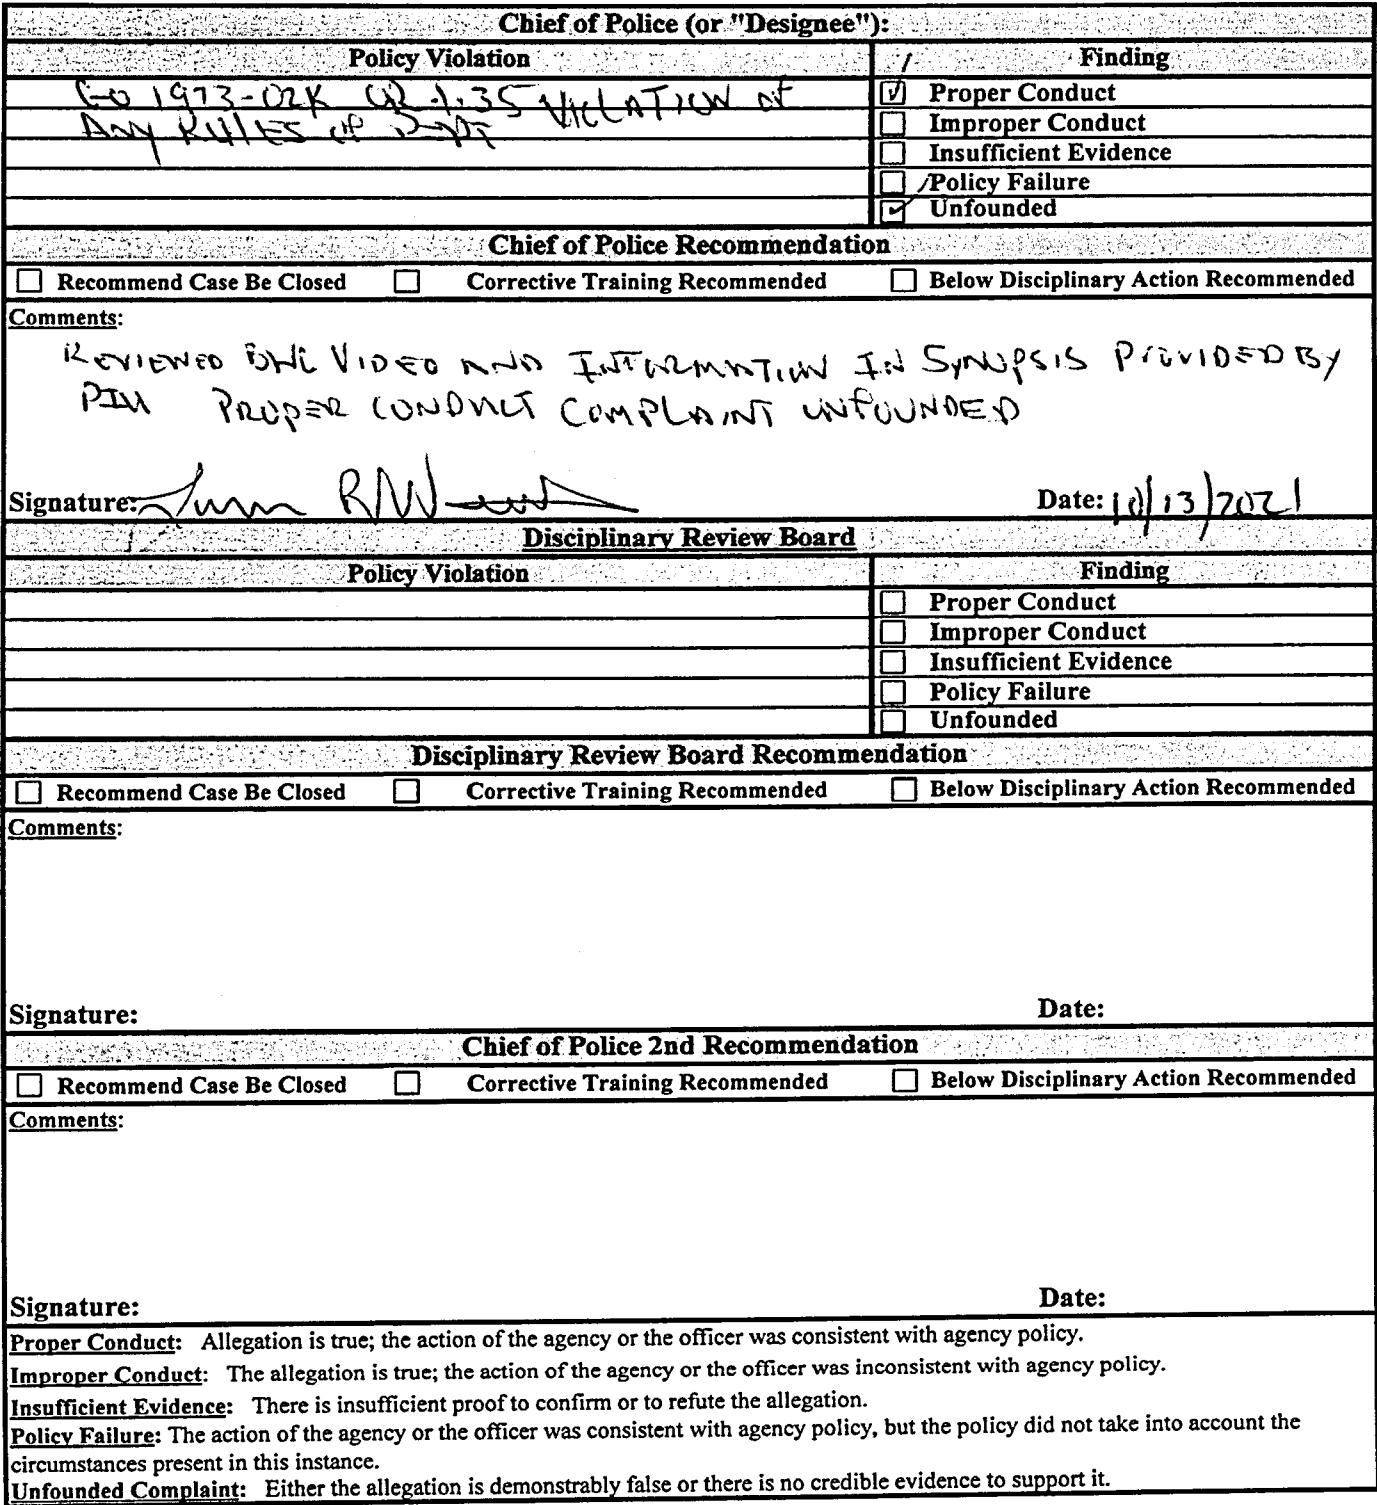 Chief of Police (or "Designee"):
Policy Violation Finding
GO 1973-02K 1.35 VIOLATION of ☑ Proper Conduct
ANY RULES of DEPT ☐ Improper Conduct
☐ Insufficient Evidence
☐ Policy Failure
☑ Unfounded
Chief of Police Recommendation
☐ Recommend Case Be Closed ☐ Corrective Training Recommended ☐ Below Disciplinary Action Recommended
Comments:
REVIEWED BWC VIDEO AND INFORMATION IN SYNOPSIS PROVIDED BY
PROPER CONDUCT COMPLAINT UNFOUNDED
Signature: Date: 10/13/2021
Disciplinary Review Board
Policy Violation Finding
☐ Proper Conduct
☐ Improper Conduct
☐ Insufficient Evidence
☐ Policy Failure
☐ Unfounded
Disciplinary Review Board Recommendation
☐ Recommend Case Be Closed ☐ Corrective Training Recommended ☐ Below Disciplinary Action Recommended
Comments:
Signature: Date:
Chief of Police 2nd Recommendation
☐ Recommend Case Be Closed ☐ Corrective Training Recommended ☐ Below Disciplinary Action Recommended
Comments:
Signature: Date:
Proper Conduct: Allegation is true; the action of the agency or the officer was consistent with agency policy.
Improper Conduct: The allegation is true; the action of the agency or the officer was inconsistent with agency policy.
Insufficient Evidence: There is insufficient proof to confirm or to refute the allegation.
Policy Failure: The action of the agency or the officer was consistent with agency policy, but the policy did not take into account the
circumstances present in this instance.
Unfounded Complaint: Either the allegation is demonstrably false or there is no credible evidence to support it.